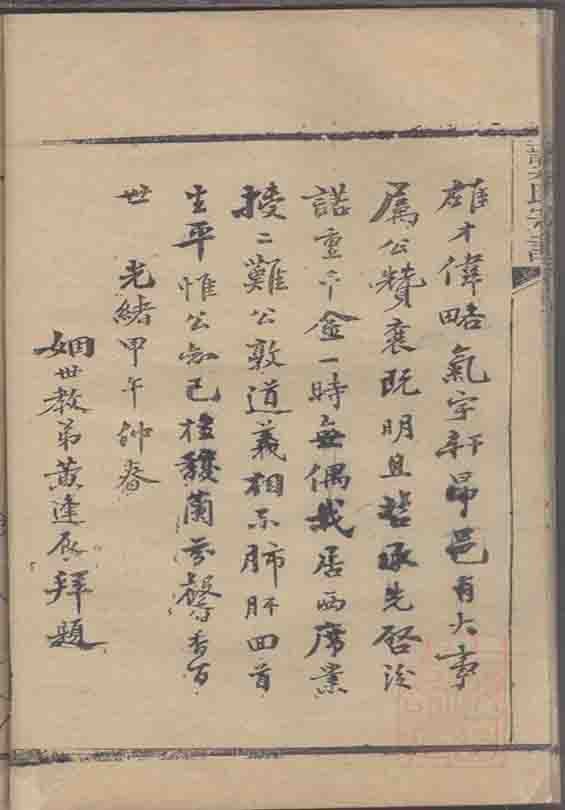 雄才偉略氣宇軒昂邑有大事
屬公贊襄既明且哲承先啓後
諾重千金一時無偶我居西席業
授二難公敦道義相示肺肝回首
生平惟公知己桂馥蘭芬馨香百
世 光緒甲午仲春
姻世教弟黃逢辰拜題